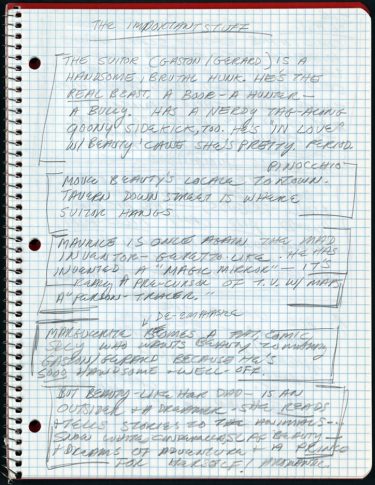 THE IMPORTANT STUFF
THE SUITOR (GASTON/GERARD) IS A
HANDSOME, BRUTAL HUNK. HE'S THE
REAL BEAST. A BOOR - A HUNTER -
A BULLY. HAS A NERDY TAG-ALONG
GOONY SIDEKICK, TOO. HE'S "IN LOVE"
W/ BEAUTY 'CAUSE SHE'S PRETTY, PERIOD.
PINOCCHIO
MOVE BEAUTY'S LOCALE TO TOWN.
TAVERN DOWN STREET IS WHERE
SUITOR HANGS
MAURICE IS ONCE AGAIN THE MAD
INVENTOR - GEPETTO-LIKE. HE HAS
INVENTED A "MAGIC MIRROR" - IT'S
REALLY A PRE-CURSOR OF T.V. W/ MAPS
A "PERSON-TRACER"
DE-EMPHASIZE
MARGUERITE BECOMES A COMIC
WHO WANTS BEAUTY TO MARRY
GASTON/GERARD BECAUSE HE'S
SOOO HANDSOME + WELL-OFF.
BUT BEAUTY - LIKE HER DAD - IS AN
OUTSIDER + A DREAMER. SHE READS
+ TELLS STORIES TO THE ANIMALS -
BEAUTY -
+ DREAMS OF ADVENTURE + A PRINCE
FOR HERSELF!